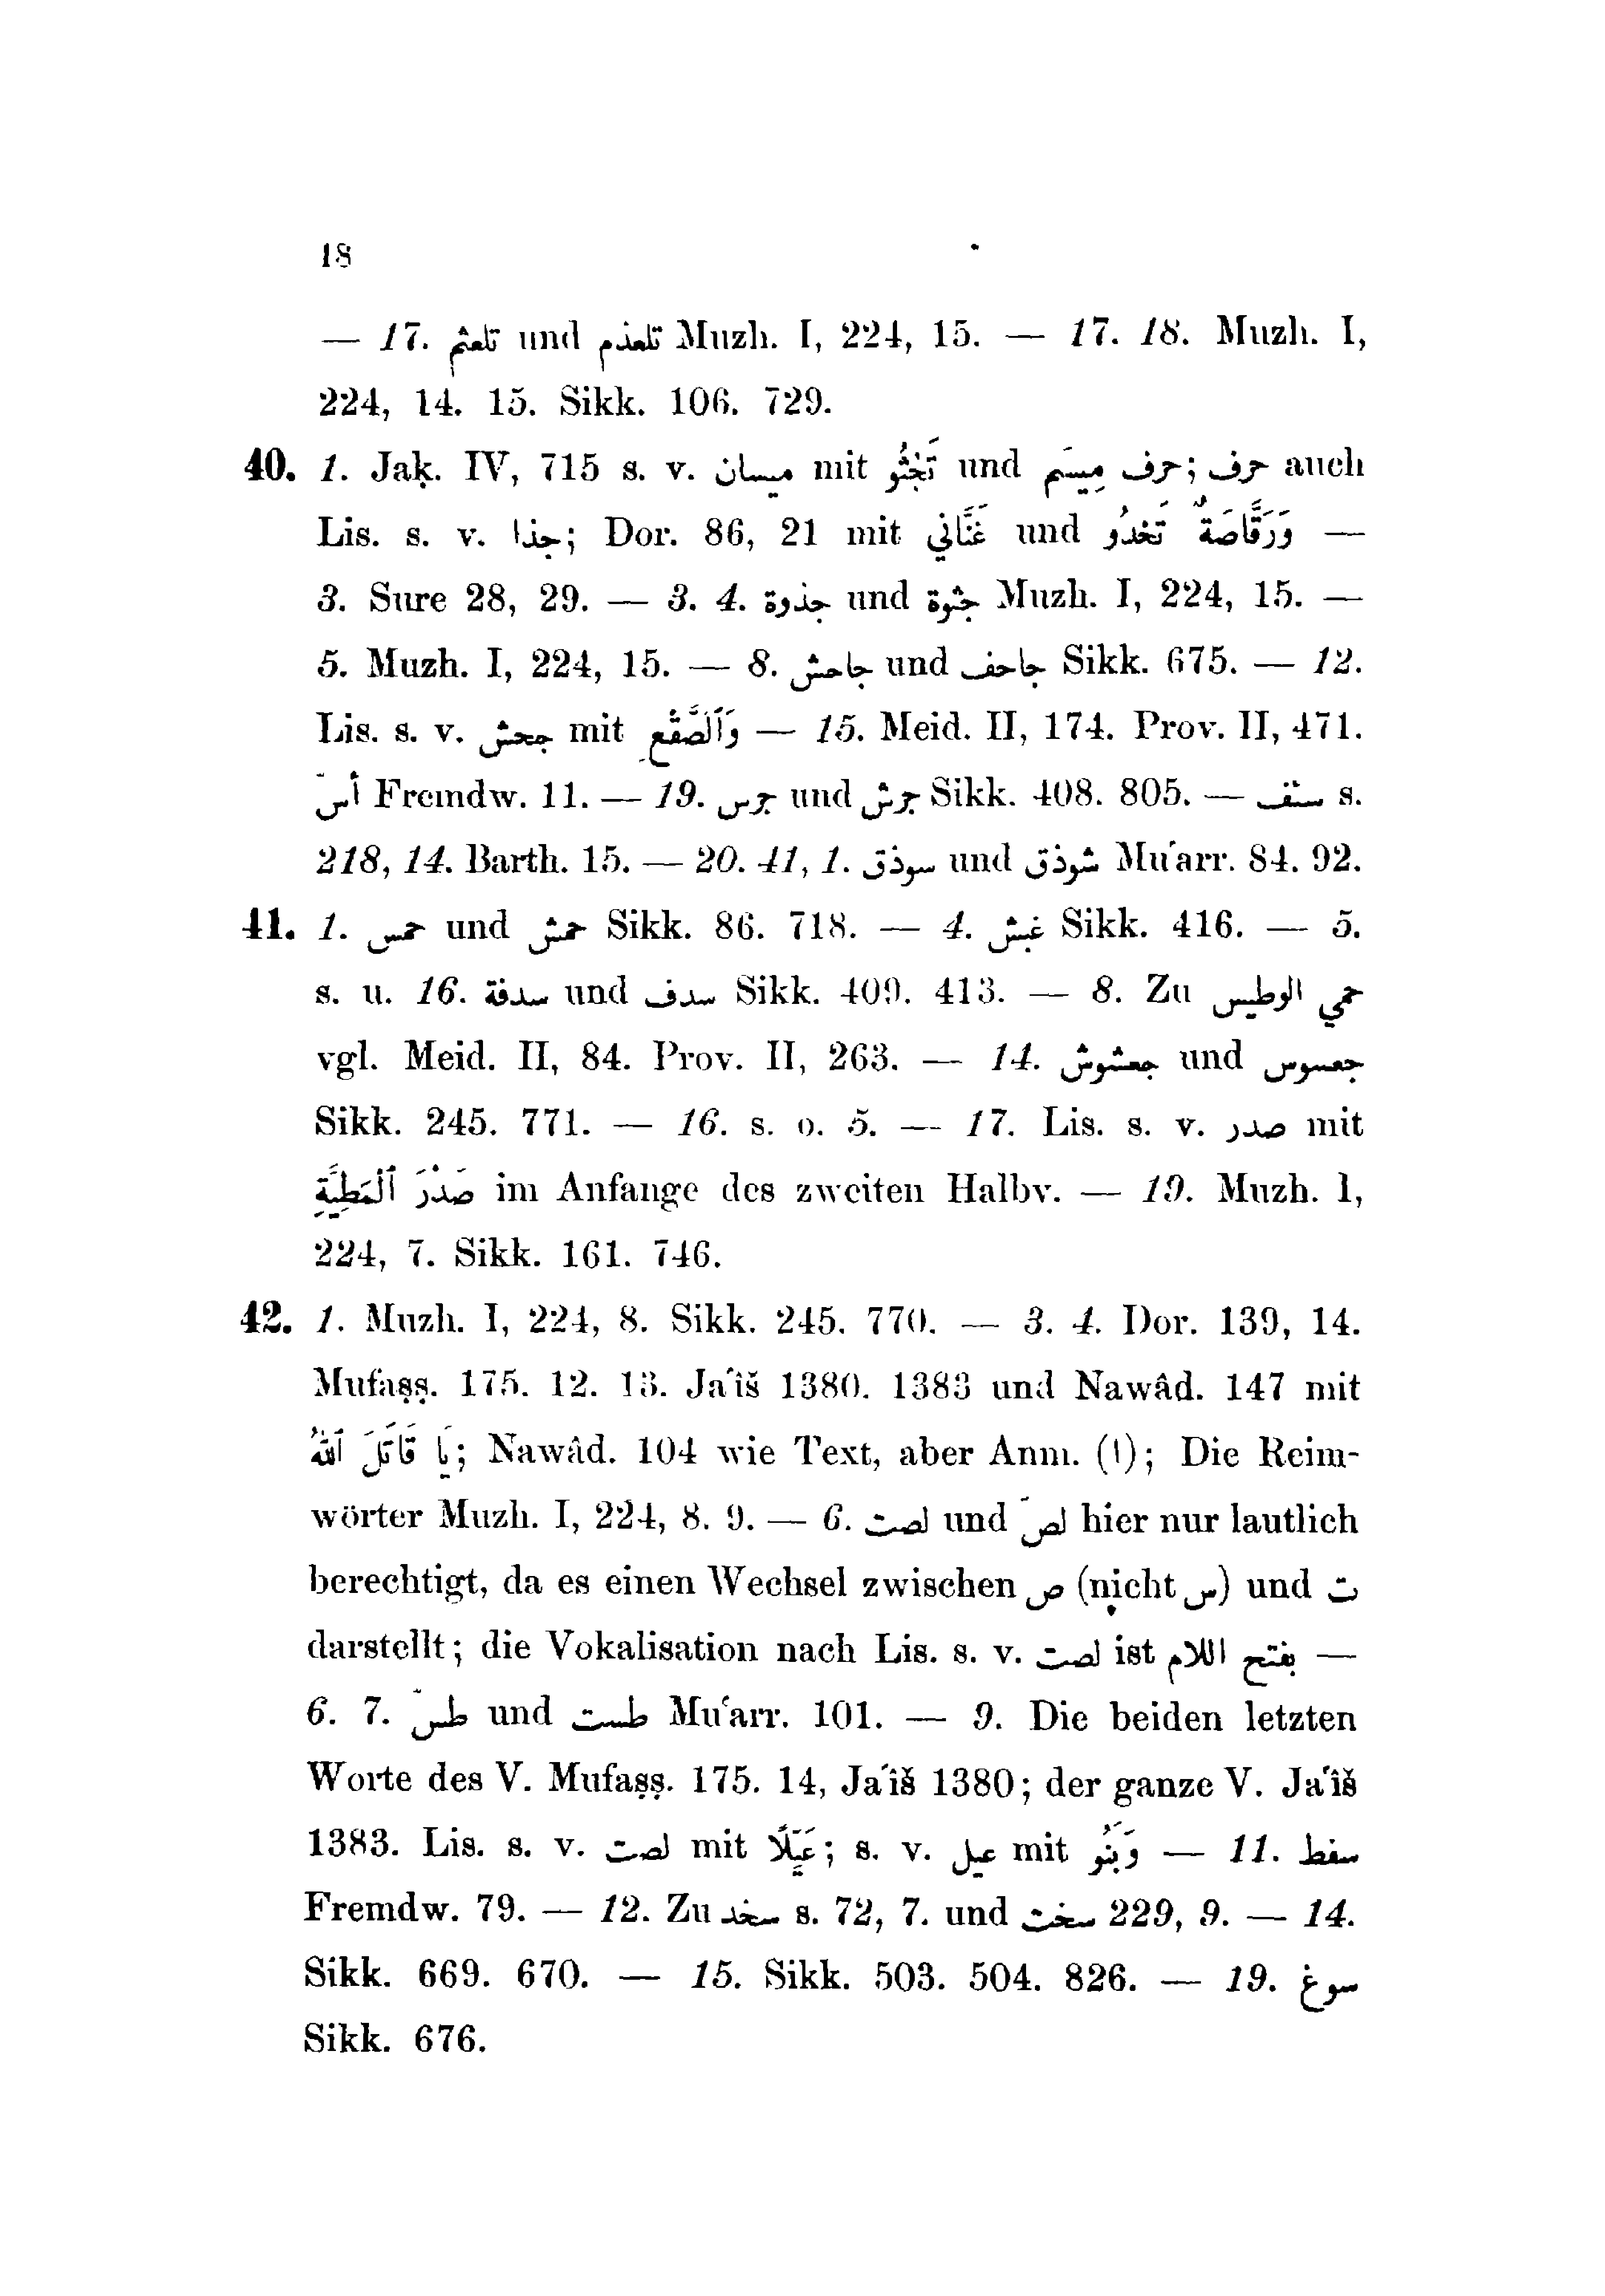 18
— 17. تلعثم und تلعذم Muzh. I, 224, 15. — 17. 18. Muzh. I,
224, 14. 15. Sikk. 106. 729.
40. 1. Jaḳ. IV, 715 s. v. ميسان mit تَجْثُو und حرف ;حرف مِيسَم auch
Lis. s. v. جذا; Dor. 86, 21 mit غَنَّاني und وَرَقَّاصَةٌ تَخْدُو —
3. Sure 28, 29. — 3. 4. جذوة und جثوة Muzh. I, 224, 15. —
5. Muzh. I, 224, 15. — 8. جاحش und جاحف Sikk. 675. — 12.
Lis. s. v. جحش mit وَٱلصَّقْعِ — 15. Meid. II, 174. Prov. II, 471.
أسّ Fremdw. 11. — 19. جرس und جرش Sikk. 408. 805. — سئف s.
218, 14. Barth. 15. — 20. 41, 1. سوذق und شوذق Muʿarr. 84. 92.
41. 1. حمس und حمش Sikk. 86. 718. — 4. غبش Sikk. 416. — 5.
s. u. 16. سدفة und سدف Sikk. 409. 413. — 8. Zu حمي الوطيس
vgl. Meid. II, 84. Prov. II, 263. — 14. جعشوش und جعسوس
Sikk. 245. 771. — 16. s. o. 5. — 17. Lis. s. v. صدر mit
صَدْرَ ٱلْمَطِيَّةِ im Anfange des zweiten Halbv. — 19. Muzh. I,
224, 7. Sikk. 161. 746.
42. 1. Muzh. I, 224, 8. Sikk. 245. 770. — 3. 4. Dor. 139, 14.
Mufaṣṣ. 175. 12. 13. Jaʿiš 1380. 1383 und Nawâd. 147 mit
يَا قَاتَلَ ٱللهُ; Nawâd. 104 wie Text, aber Anm. (١); Die Reim-
wörter Muzh. I, 224, 8. 9. — 6. لصت und لصّ hier nur lautlich
berechtigt, da es einen Wechsel zwischen ص (nicht س) und ت
darstellt; die Vokalisation nach Lis. s. v. لصت ist بفتح اللام —
6. 7. طسّ und طست Muʿarr. 101. — 9. Die beiden letzten
Worte des V. Mufaṣṣ. 175. 14, Jaʿiš 1380; der ganze V. Jaʿiš
1383. Lis. s. v. لصت mit عَيِّلًا; s. v. عيل mit وَبَنُو — 11. سفط
Fremdw. 79. — 12. Zu سخد s. 72, 7. und سخت 229, 9. — 14.
Sikk. 669. 670. — 15. Sikk. 503. 504. 826. — 19. سوغ
Sikk. 676.